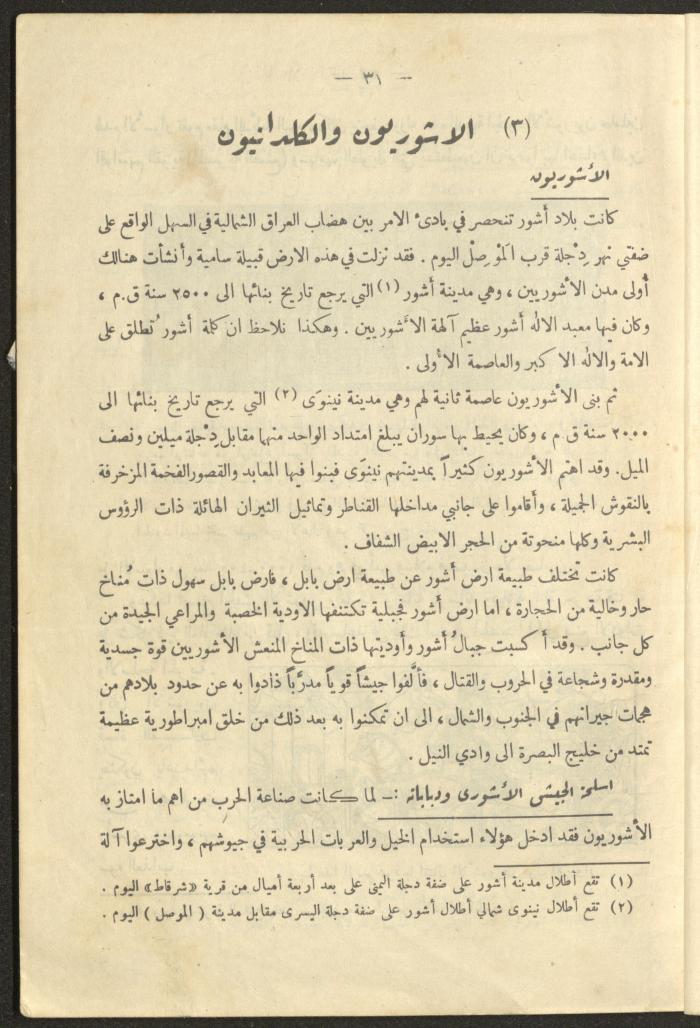 — ٣١ —
(٣) الاشوريون والكلدانيون
الأشوريون
كانت بلاد أشور تنحصر في بادىء الامر بين هضاب العراق الشمالية في السهل الواقع على
ضفتي نهر دِجْلة قرب المَوْصِلْ اليوم . فقد نزلت في هذه الارض قبيلة سامية وأنشأت هنالك
أولى مدن الأشوريين ، وهي مدينة أشور (١) التي يرجع تاريخ بنائها الى ٢٥٠٠ سنة ق.م ،
وكان فيها معبد الاله أشور عظيم آلهة الاشوريين . وهكذا نلاحظ ان كلمة أشور تُطلق على
الامة والاله الاكبر والعاصمة الأولى .
ثم بنى الأشوريون عاصمة ثانية لهم وهي مدينة نينوَى (٢) التي يرجع تاريخ بنائها الى
٢٠٠٠ سنة ق.م ، وكان يحيط بها سوران يبلغ امتداد الواحد منهما مقابل دِجْلة ميلين ونصف
الميل. وقد اهتم الأشوريون كثيراً بمدينتهم نينوَى فبنوا فيها المعابد والقصور الفخمة المزخرفة
بالنقوش الجميلة ، وأقاموا على جانبي مداخلها القناطر وتماثيل الثيران الهائلة ذات الرؤوس
البشرية وكلها منحوتة من الحجر الابيض الشفاف .
كانت تختلف طبيعة ارض أشور عن طبيعة ارض بابل ، فارض بابل سهول ذات مُناخ
حار وخالية من الحجارة ، اما ارض أشور فجبلية تكتنفها الاودية الخصبة والمراعي الجيدة من
كل جانب . وقد أكسبت جبالُ أشور وأوديتها ذات المناخ المنعش الأشوريين قوة جسدية
ومقدرة وشجاعة في الحروب والقتال ، فألَّفوا جيشاً قوياً مدرَّباً ذادوا به عن حدود بلادهم من
هجمات جيرانهم في الجنوب والشمال ، الى ان تمكنوا به بعد ذلك من خلق امبراطورية عظيمة
تمتد من خليج البصرة الى وادي النيل .
اسلحة الجيش الأشوري ودباباته :– لما كانت صناعة الحرب من اهم ما امتاز به
الأشوريون فقد ادخل هؤلاء استخدام الخيل والعربات الحربية في جيوشهم ، واخترعوا آلة
(١) تقع أطلال مدينة أشور على ضفة دجلة اليمنى على بعد أربعة أميال من قرية «شرقاط» اليوم .
(٢) تقع أطلال نينوى شمالي أطلال أشور على ضفة دجلة اليسرى مقابل مدينة ( الموصل ) اليوم .